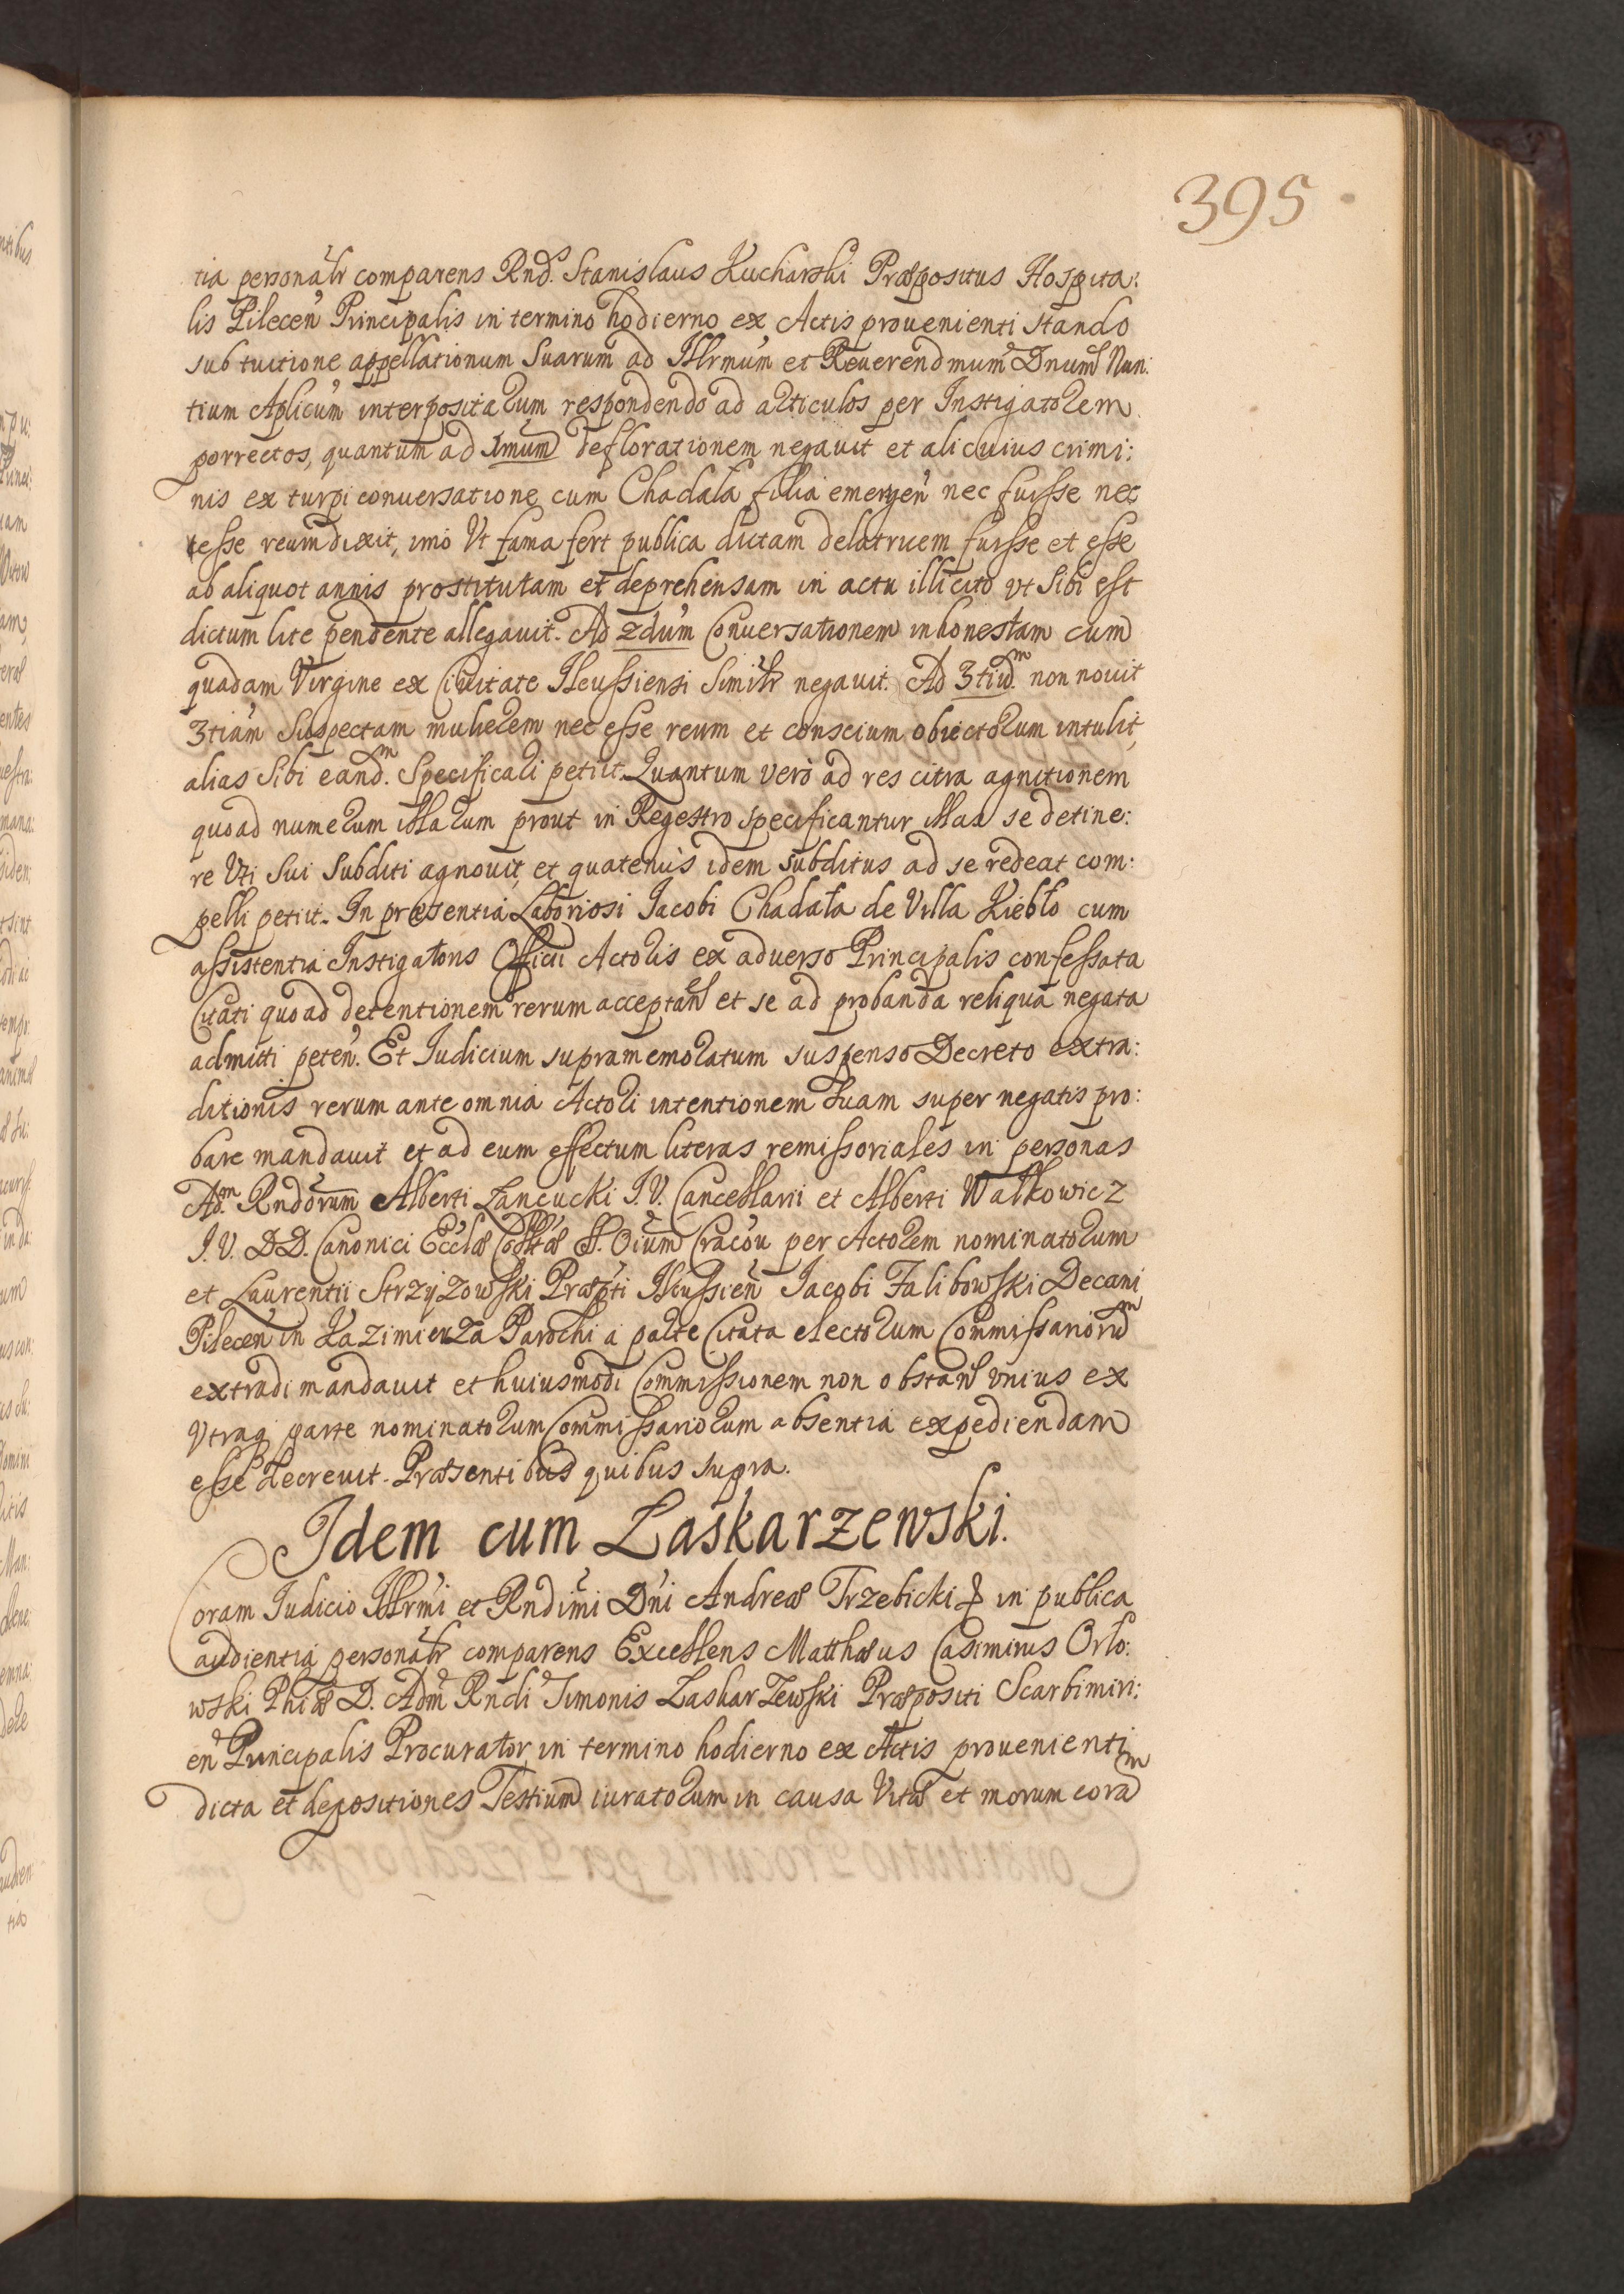 395
tia personalr comparens Rnd. Stanislaus Kucharski Præpositus Hospita:
lis Pilecen Principalis in termino hodierno ex Actis prouenienti stando
sub tuitione appellationum suarum ad Illrmum et Reuerendmum Dnum Nun:
tium Aplicum interpositarum respondendo ad articulos per Instigatorem
porrectos, quantum ad 1mum deflorationem negauit et alicuius crimi:
nis ex turpi conuersatione cum Chadała filia emergen nec fuisse nec
esse reum dixit, imo Vt fama fert publica dictam delatricem fuisse et esse
ab aliquot annis prostitutam et deprehensam in actu illicito vt sibi est
dictum lite pendente allegauit. Ad 2dum Conuersationem inhonestam cum
quadam Virgine ex Ciuitate Ilcussiensi Similr negauit. Ad 3tium non nouit
3tiam Suspectam mulierem nec esse reum et conscium obiectorum intulit,
alias sibi eandm. Specificari petiit. Quantum vero ad res citra agnitionem
quoad numerum illarum prout in Regestro specificantur illas se detine:
re Vti sui subditi agnouit, et quatenus idem subditus ad se redeat com:
pelli petiit. In præsentia Laboriosi Iacobi Chadała de Villa Kiebło cum
assistentia Instigatoris Officii Actoris ex aduerso Principalis confessata
Citati quoad detentionem rerum acceptan et se ad probanda reliqua negata
admitti peten. Et Iudicium supramemoratum suspenso Decreto extra:
ditionis rerum ante omnia Actori intentionem suam super negatis pro:
bare mandauit et ad eum effectum literas remissoriales in personas
Adm Rndorum Alberti Łancucki I. V. Cancellarii et Alberti Wałkowicz
I. V. DD. Canonici Ecclæ Colltæ SS. Oium Cracou per Actorem nominatorum
et Laurentii Strzyzowski Præpti Ilcussien Iacobi Falibowski Decani
Pilecen in Kazimierza Parochi a parte Citata electorum Commissariorum
extradi mandauit et huiusmodi Commissionem non obstan vnius ex
Vtraq parte nominatorum Commissariorum absentia expediendam
esse decreuit. Præsentibus quibus supra.
Idem cum Łaskarzewski.
Coram Iudicio Illrmi et Rndimi Dni Andreæ Trzebicki in publica
audientia personalr comparens Excellens Matthæus Casimirus Orło:
wski Phiæ D. Adm Rndi Simonis Łaskarzewski Præpositi Scarbimiri:
en Principalis Procurator in termino hodierno ex Actis prouenienti
dicta et depositiones Testium iuratorum in causa Vitæ et morum coram